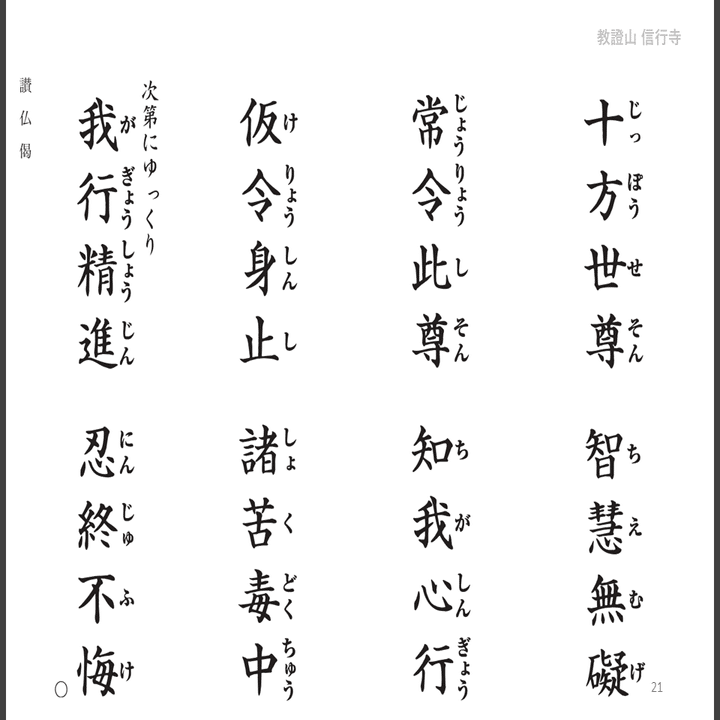 教證山 信行寺
十方世尊 智慧無礙
じっ ぽう せ そん ち え む げ
常令此尊 知我心行
じょう りょう し そん ち が しん ぎょう
仮令身止 諸苦毒中
け りょう しん し しょ く どく ちゅう
次第にゆっくり
我行精進 忍終不悔
が ぎょう しょう じん にん じゅ ふ け
○
讃仏偈
21